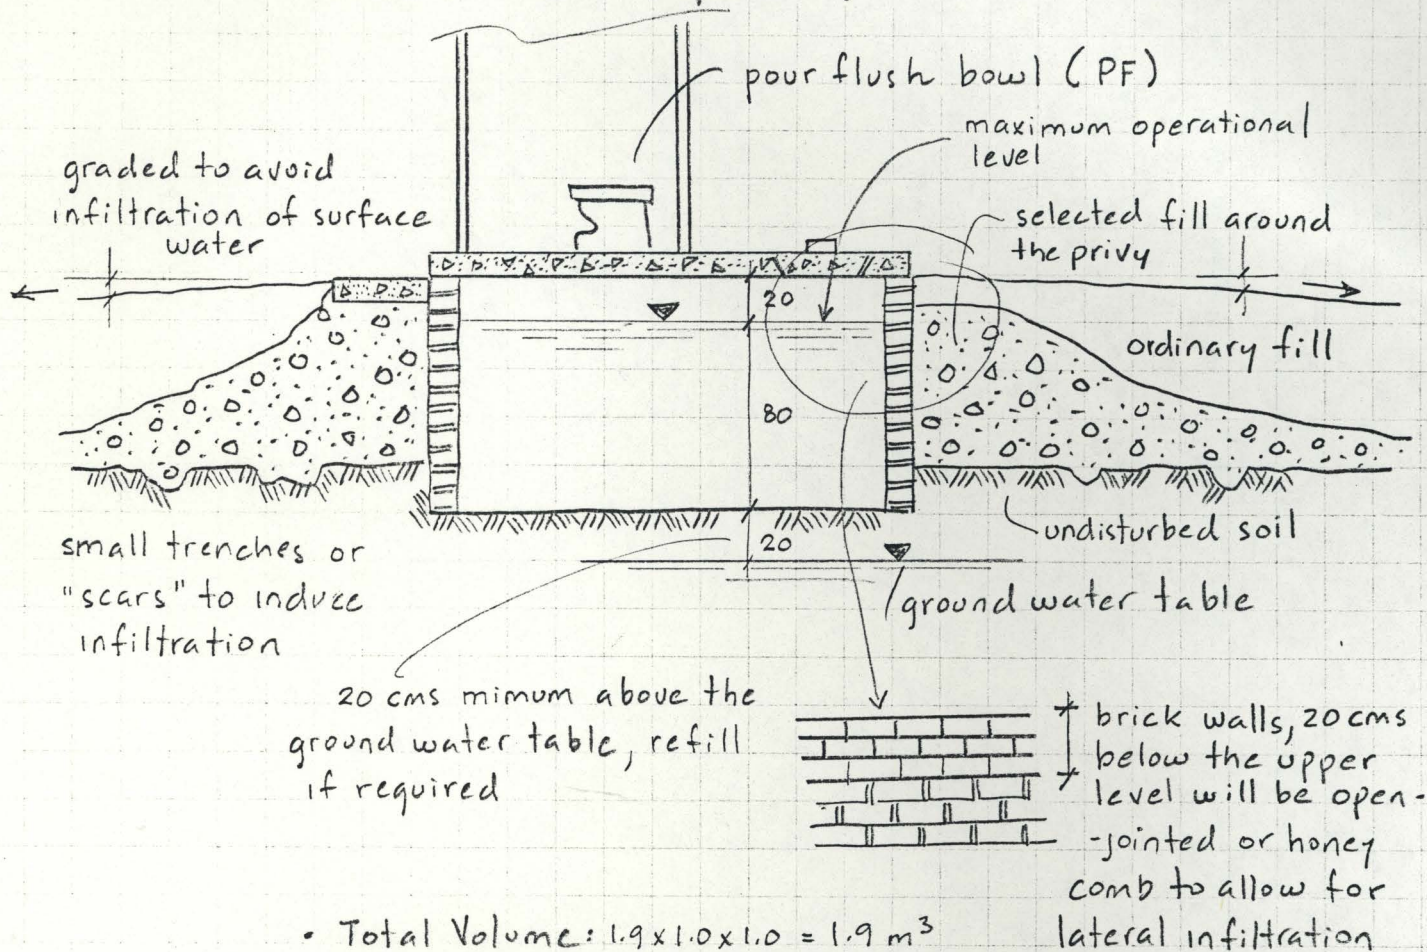 pour flush bowl (PF)
maximum operational
level
graded to avoid
infiltration of surface
water
selected fill around
the privy
20
ordinary fill
80
undisturbed soil
20
small trenches or
"scars" to induce
infiltration
ground water table
20 cms mimum above the
ground water table, refill
if required
brick walls, 20 cms
below the upper
level will be open-
-jointed or honey
comb to allow for
lateral infiltration
• Total Volume: 1.9 x 1.0 x 1.0 = 1.9 m³